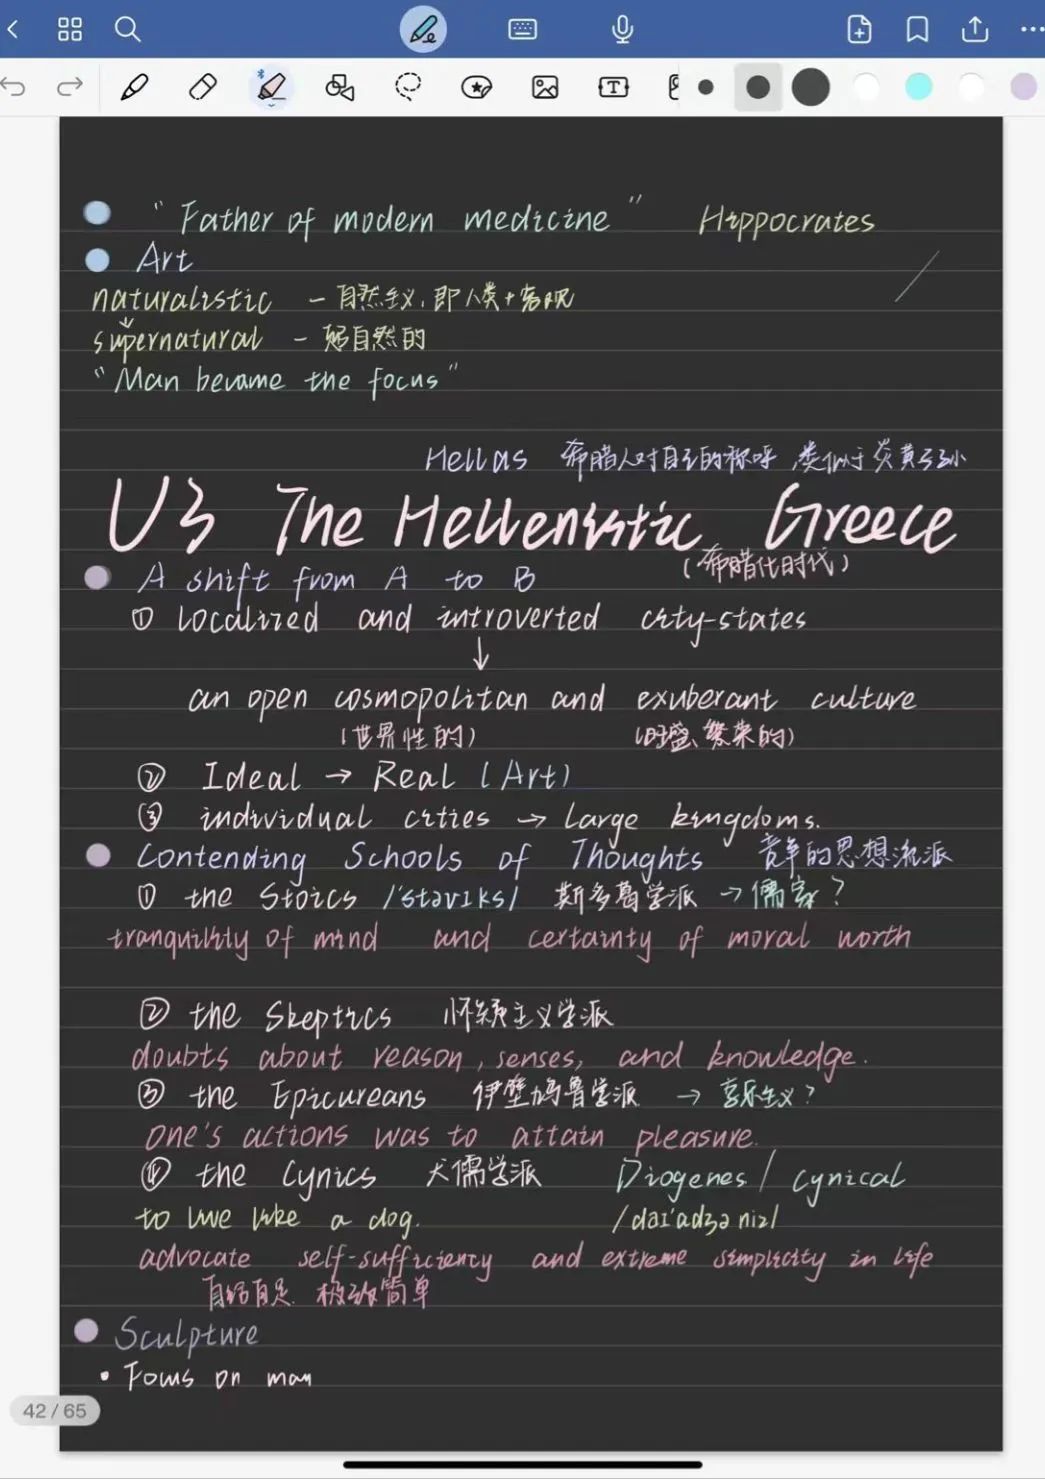 " Father of modern medicine " Hippocrates
Art
naturalistic — 自然主义, 即人类+客观
supernatural — 超自然的
" Man became the focus "
Hellas 希腊人对自己的称呼, 类似于炎黄子孙
U3 The Hellenistic Greece
(希腊化时代)
A shift from A to B
① localized and introverted city-states
↓
an open cosmopolitan and exuberant culture
(世界性的) (旺盛、繁荣的)
② Ideal → Real (Art)
③ individual cities → large kingdoms.
Contending Schools of Thoughts 竞争的思想流派
① the Stoics /'stəʊɪks/ 斯多葛学派 → 儒家?
tranquility of mind and certainty of moral worth
② the Skeptics 怀疑主义学派
doubts about reason, senses, and knowledge.
③ the Epicureans 伊壁鸠鲁学派 → 享乐主义?
one's actions was to attain pleasure.
④ the Cynics 犬儒学派 Diogenes / cynical
to live like a dog. /daɪ'ɑdʒə niz/
advocate self-sufficiency and extreme simplicity in life
自给自足 极致简单
Sculpture
• Focus on man
42 / 65